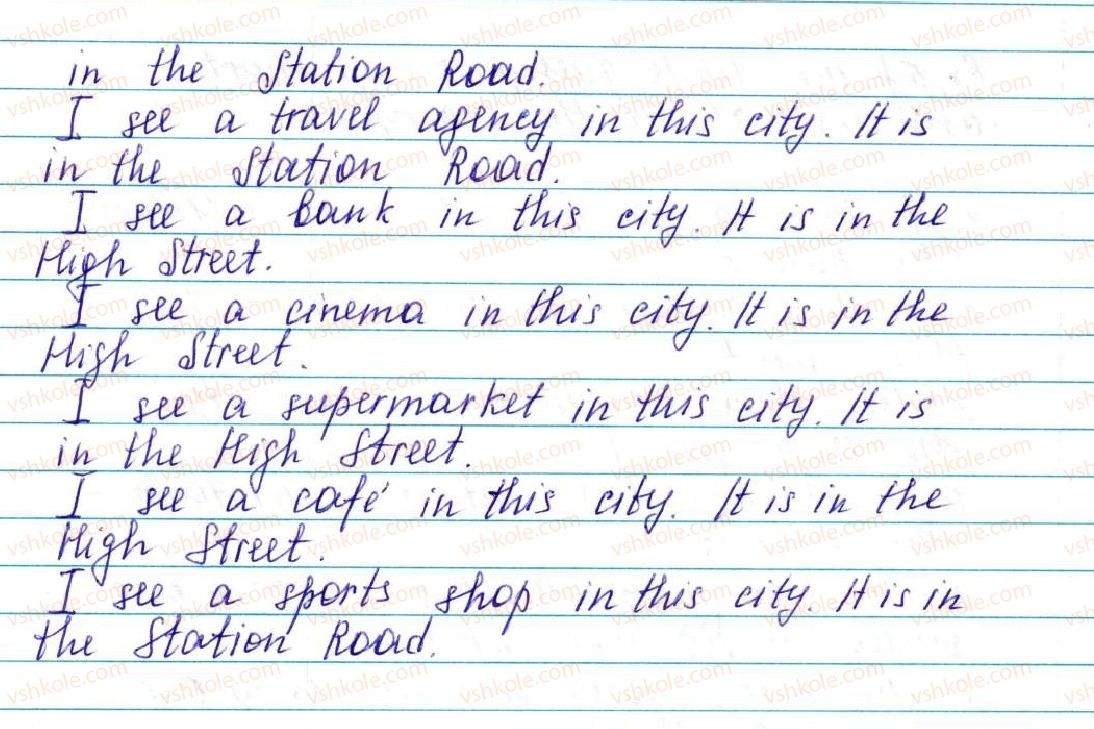 in the Station Road.
I see a travel agency in this city. It is
in the Station Road.
I see a bank in this city. It is in the
High Street.
I see a cinema in this city. It is in the
High Street.
I see a supermarket in this city. It is
in the High Street.
I see a café in this city. It is in the
High Street.
I see a sports shop in this city. It is in
the Station Road.